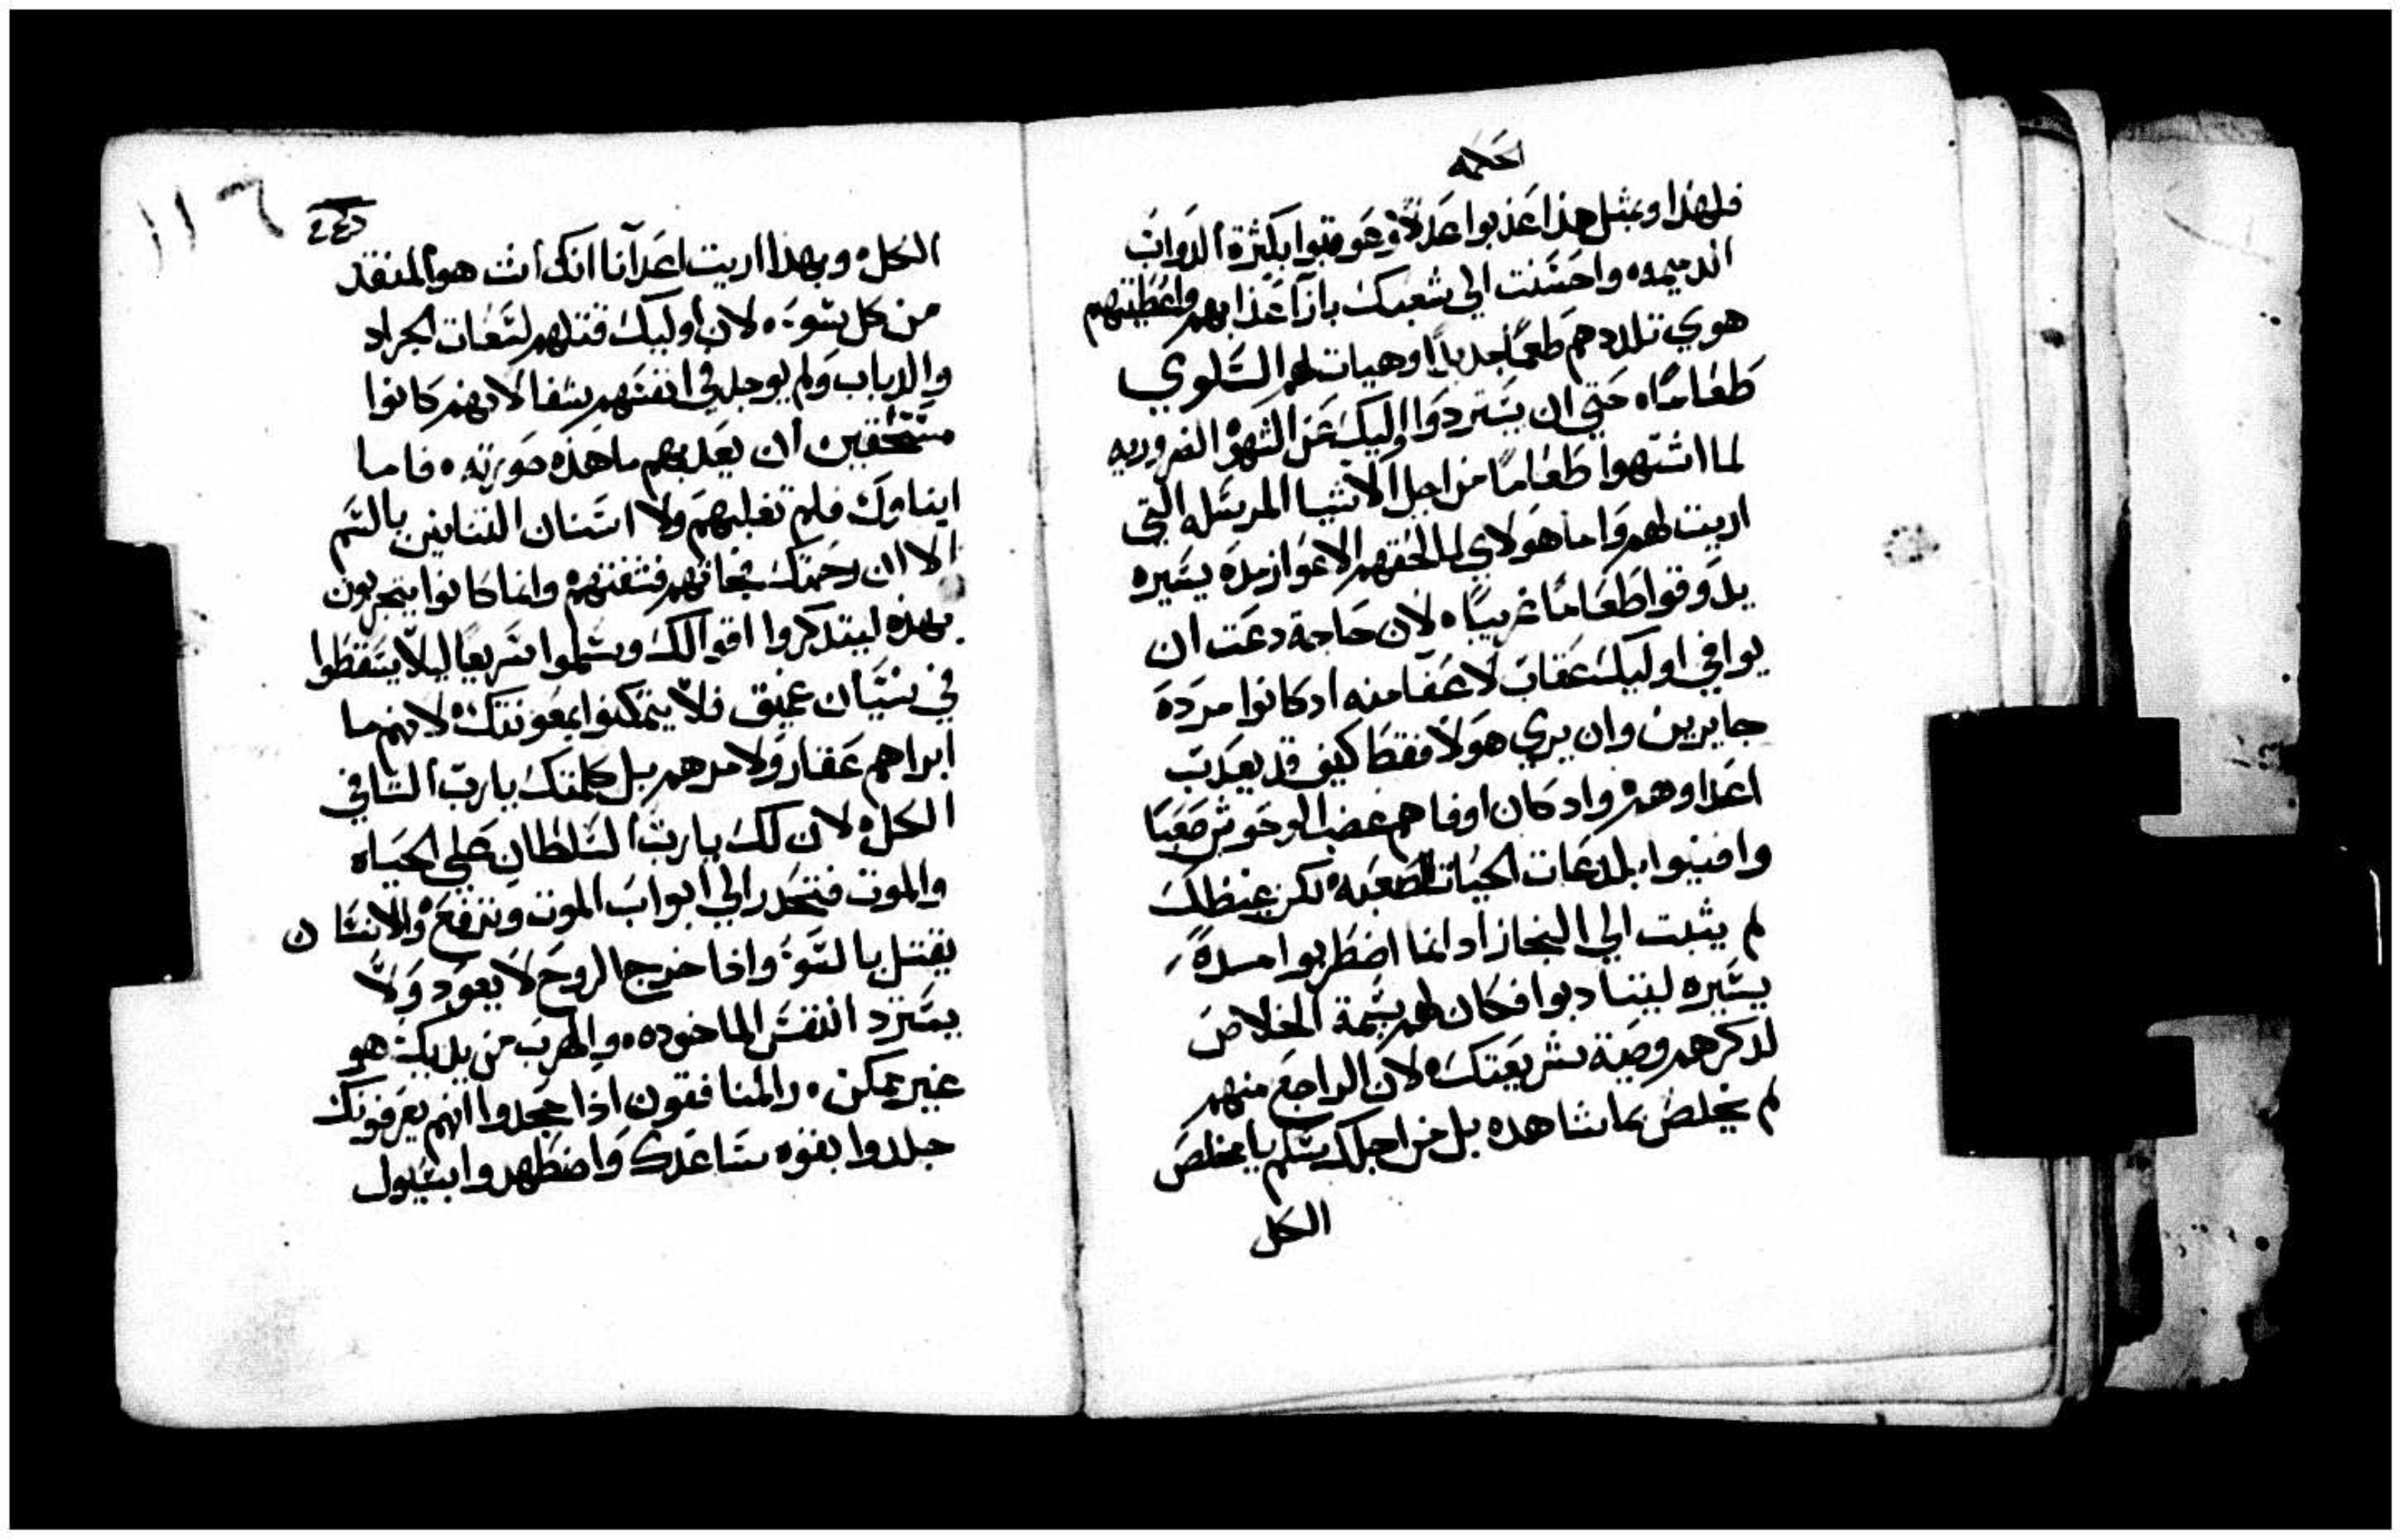 الحكمه
فلهذا وبمثل هذا عذبوا عدلاً وعوقبوا بكثرة الدواب
الدميمه واحسنت الي شعبك بازآ عذابهم واعطيتهم
هوي تلددهم طعمًا جديدًا وهيات لهم السلوي
طعامًا حتي ان يستردوا اوليك عن الشهوة الضروريه
لما اشتهوا طعامًا من اجل الاشيا المرسله التي
اريت لهم واما هولاي لما لحقهم الاعواز مده يسيره
يذوقوا طعامًا غريبًا لان حاجة دعت ان
يوافي اوليك عقاب لا عفا منه اد كانوا مردة
جايرين وان يري هولا فقط كيف قد يعدب
اعداوهم واد كان اوفاهم غضب الوحوش صعبًا
وافنيوا بلدغات الحيات الصعبه لكن غيظك
لم يثبت الي النجاز اد انما اضطربوا مدة
يسيره ليتادبوا فكان لهم سمة الخلاص
لدكرهم وصية شريعتك لان الراجع منهم
لم يخلص بما شاهده بل من اجلك يسلم يا مخلص
الكل
١١٦
الكل وبهذا اريت اعدآنا انك انت هو المنقد
من كل سوء لان اوليك قتلهم لسعات الجراد
والدباب ولم يوجد في انفسهم شفا لانهم كانوا
مستحقين ان يعدبهم ما هذه صورته فاما
ابناوك فلم تغلبهم ولا اسنان التنانين بالسم
الا ان رحمتك نجاتهم فشفتهم وانما كانوا ينجربون
بهذه ليتدكروا اقوالك ويسلموا سريعًا ليلا يسقطوا
في نسيان عميق فلا يتمكنوا بمعونتك لانهم ما
ابراهم عقار ولا مرهم بل كلمتك يا رب الشافي
الكل لان لك يا رب السلطان علي الحياه
والموت فتحدر الي ابواب الموت وترفع والانسان
يقتل بالسوء واذا خرج الروح لا يعود ولا
يسترد النفس الماخوده والهرب من يديك هو
غير ممكن والمنافقون اذا جحدوا انهم يعرفونك
جلدوا بقوه ساعدك واضطهدوا بسيول